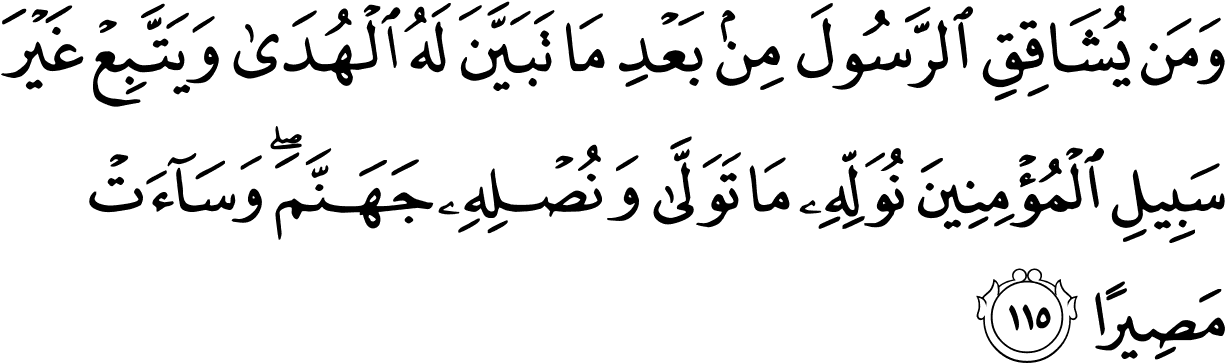 وَمَن يُشَاقِقِ ٱلرَّسُولَ مِنۢ بَعْدِ مَا تَبَيَّنَ لَهُ ٱلْهُدَىٰ وَيَتَّبِعْ غَيْرَ
سَبِيلِ ٱلْمُؤْمِنِينَ نُوَلِّهِۦ مَا تَوَلَّىٰ وَنُصْلِهِۦ جَهَنَّمَ ۖ وَسَآءَتْ
مَصِيرًا ١١٥